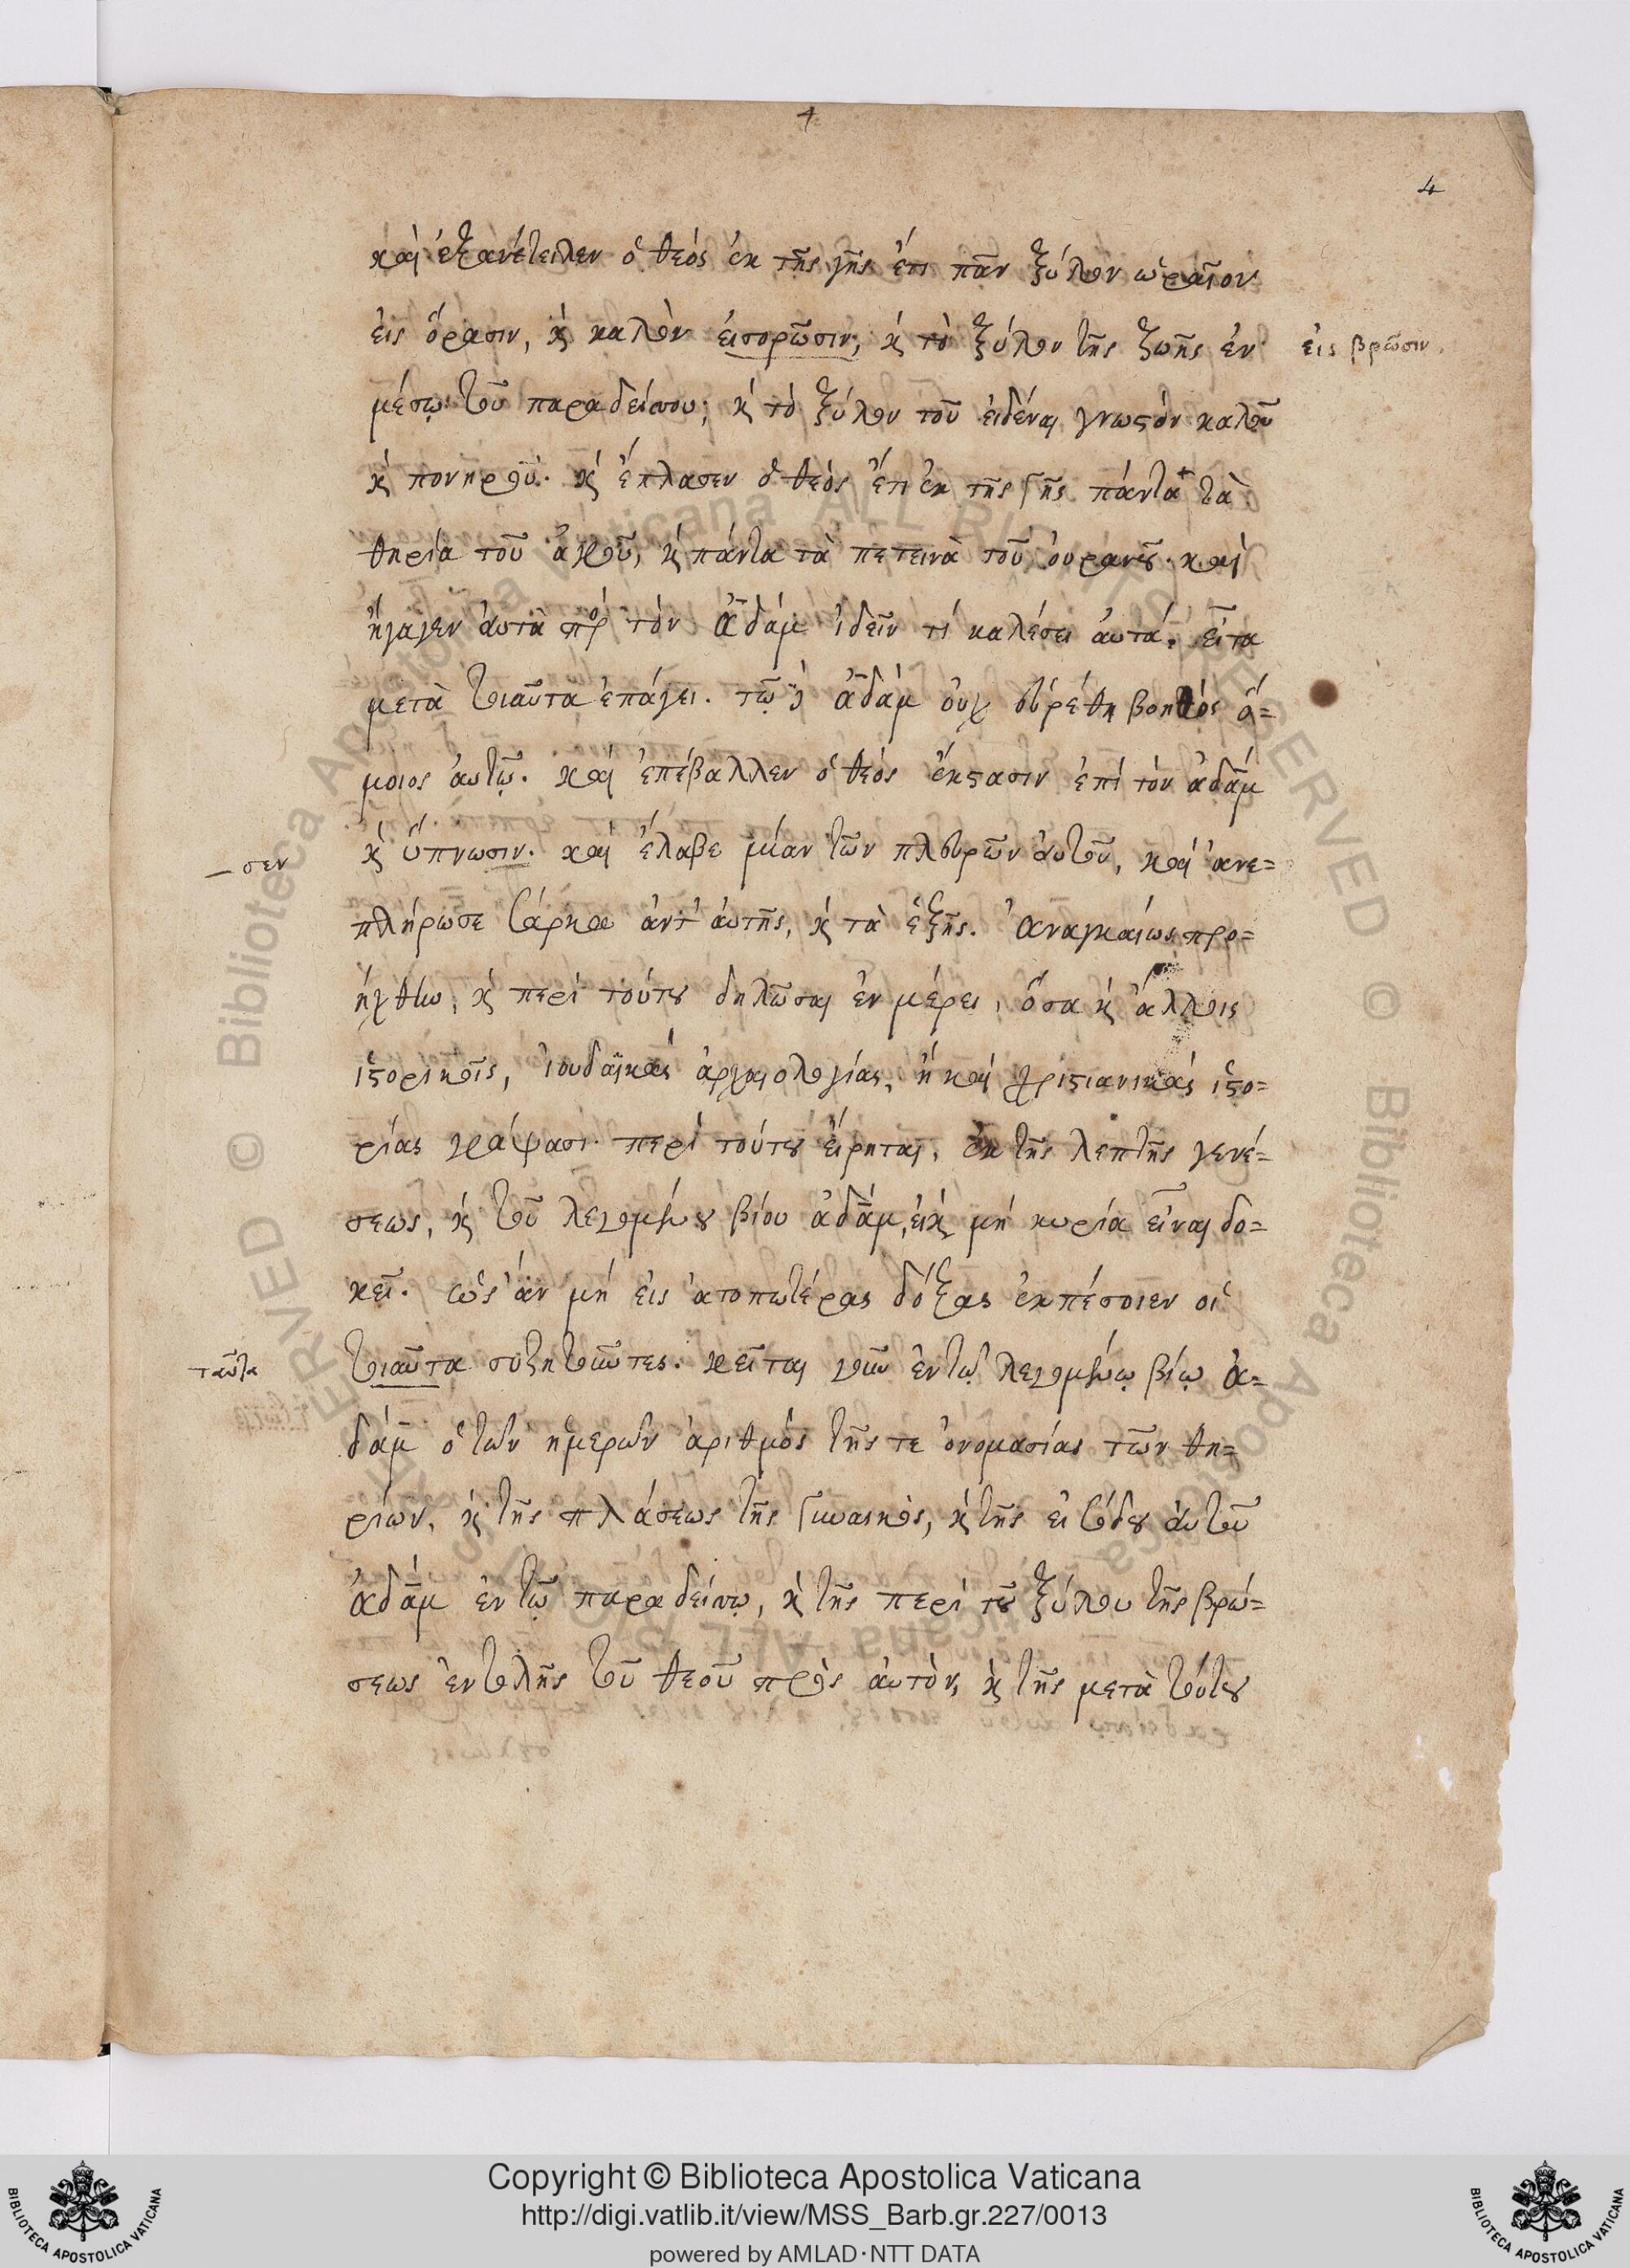 4
4
καὶ ἐξανέτειλεν ὁ θεός ἐκ τῆς γῆς ἔτι πᾶν ξύλον ὡραῖον
εἰς ὅρασιν, κ̀ καλὸν εἰσορῶσιν, κ̀ τὸ ξύλον τῆς ζωῆς ἐν
εἰς βρῶσιν.
μέσῳ τοῦ παραδείσου, κ̀ τὸ ξύλον τοῦ εἰδέναι γνωστὸν καλοῦ
κ̀ πονηροῦ. κ̀ ἔπλασεν ὁ θεὸς ἔτι ἐκ τῆς γῆς πάντα τὰ
θηρία τοῦ ἀγροῦ, κ̀ πάντα τὰ πετεινὰ τοῦ οὐρανοῦ. καὶ
ἤγαγεν αὐτὰ πρὸς τὸν Ἀδὰμ ἰδεῖν τί καλέσει αὐτά. εἶτα
μετὰ τοιαῦτα ἐπάγει. τῷ δὲ ἀδὰμ οὐχ εὑρέθη βοηθὸς ὅ=
μοιος αὐτῷ. καὶ ἐπέβαλλεν ὁ θεὸς ἔκστασιν ἐπὶ τὸν ἀδὰμ
– σεν
κ̀ ὕπνωσιν. καὶ ἔλαβε μίαν τῶν πλευρῶν αὐτοῦ, καὶ ἀνε=
πλήρωσε σάρκα ἀντ' αὐτῆς, κ̀ τὰ ἑξῆς. Ἀναγκαίως προ=
ήχθην, κ̀ περὶ τούτου δηλῶσαι ἐν μέρει, ὅσα κ̀ ἄλλοις
ἱστορικοῖς, ἰουδαϊκὰς ἀρχαιολογίας, ἢ καὶ χριστιανικὰς ἱστο=
ρίας γράψασι περὶ τούτου εἴρηται, ἐκ τῆς λεπτῆς γενέ=
σεως, κ̀ τοῦ λεγομένου βίου ἀδάμ, εἰ κ̀ μὴ κυρία εἶναι δο=
κεῖ. ὡς ἂν μὴ εἰς ἀτοπωτέρας δόξας ἐκπέσοιεν οἱ
ταῦτα
τοιαῦτα συζητοῦντες. κεῖται γοῦν ἐν τῷ λεγομένῳ βίῳ Ἀ=
δὰμ ὁ τῶν ἡμερῶν ἀριθμὸς τῆς τε ὀνομασίας τῶν θη=
ρίων, κ̀ τῆς πλάσεως τῆς γυναικὸς, κ̀ τῆς εἰσόδου αὐτοῦ
Ἀδὰμ ἐν τῷ παραδείσῳ, κ̀ τῆς περὶ τοῦ ξύλου τῆς βρώ=
σεως ἐντολῆς τοῦ θεοῦ πρὸς αὐτὸν, κ̀ τῆς μετὰ τούτου
Copyright © Biblioteca Apostolica Vaticana
http://digi.vatlib.it/view/MSS_Barb.gr.227/0013
powered by AMLAD·NTT DATA
BIBLIOTECA APOSTOLICA VATICANA
BIBLIOTECA APOSTOLICA VATICANA